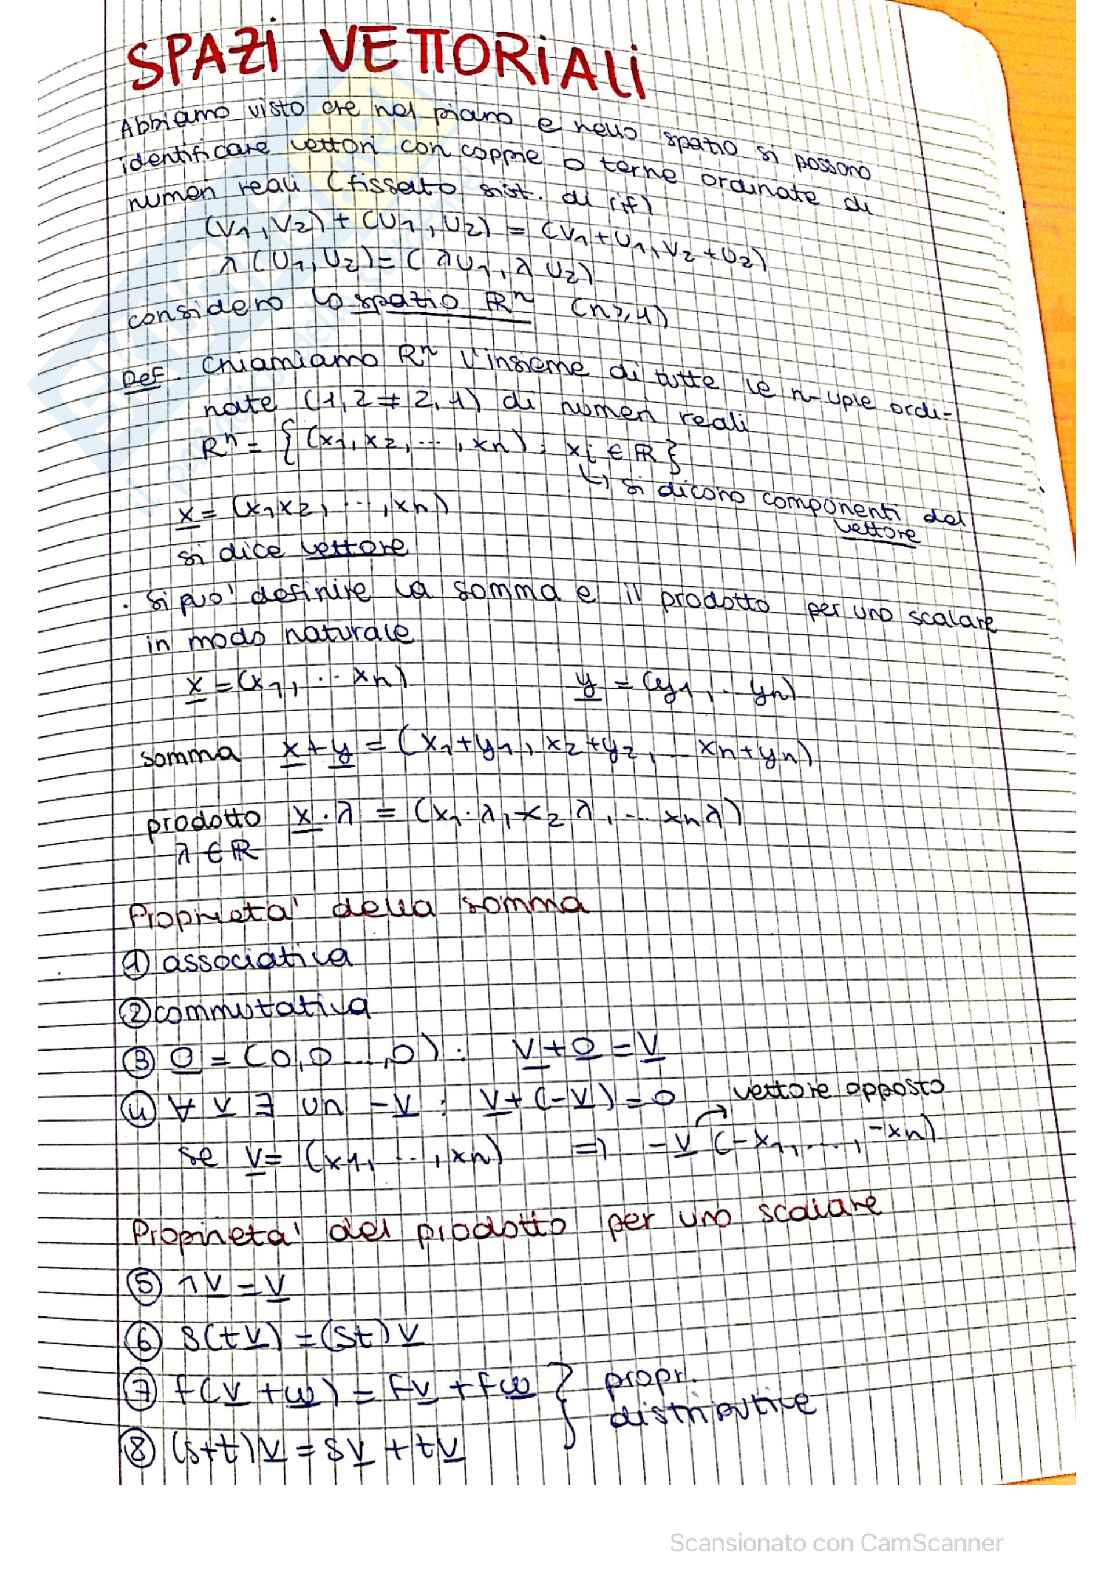 SPAZI VETTORIALI
Abbiamo visto che nel piano e nello spazio si possono
identificare vettori con coppie o terne ordinate di
numeri reali (fissato sist. di rif)
(v1, v2) + (u1, u2) = (v1+u1, v2+u2)
λ(u1, u2) = (λu1, λu2)
considero lo spazio ℝⁿ (n≥1)
Def. Chiamiamo ℝⁿ l'insieme di tutte le n-uple ordi-
nate (1,2 ≠ 2,1) di numeri reali
ℝⁿ = {(x1, x2, ..., xn) : xi ∈ ℝ}
↳ si dicono componenti del
vettore
x = (x1, x2, ..., xn)
si dice vettore
· si puo' definire la somma e il prodotto per uno scalare
in modo naturale
x = (x1, ... xn) y = (y1, .. yn)
somma x+y = (x1+y1, x2+y2, ... xn+yn)
prodotto x·λ = (x1·λ, x2λ, ... xnλ)
λ ∈ ℝ
Proprieta' della somma
① associativa
② commutativa
③ 0 = (0,0 ...,0) : v+0 = v
④ ∀ v ∃ un -v : v+(-v) = 0 vettore opposto
se v = (x1, ..., xn) => -v (-x1, ..., -xn)
Proprieta' del prodotto per uno scalare
⑤ 1v = v
⑥ s(tv) = (st)v
⑦ f(v+w) = fv + fw } propr.
distributive
⑧ (s+t)v = sv + tv
Scansionato con CamScanner